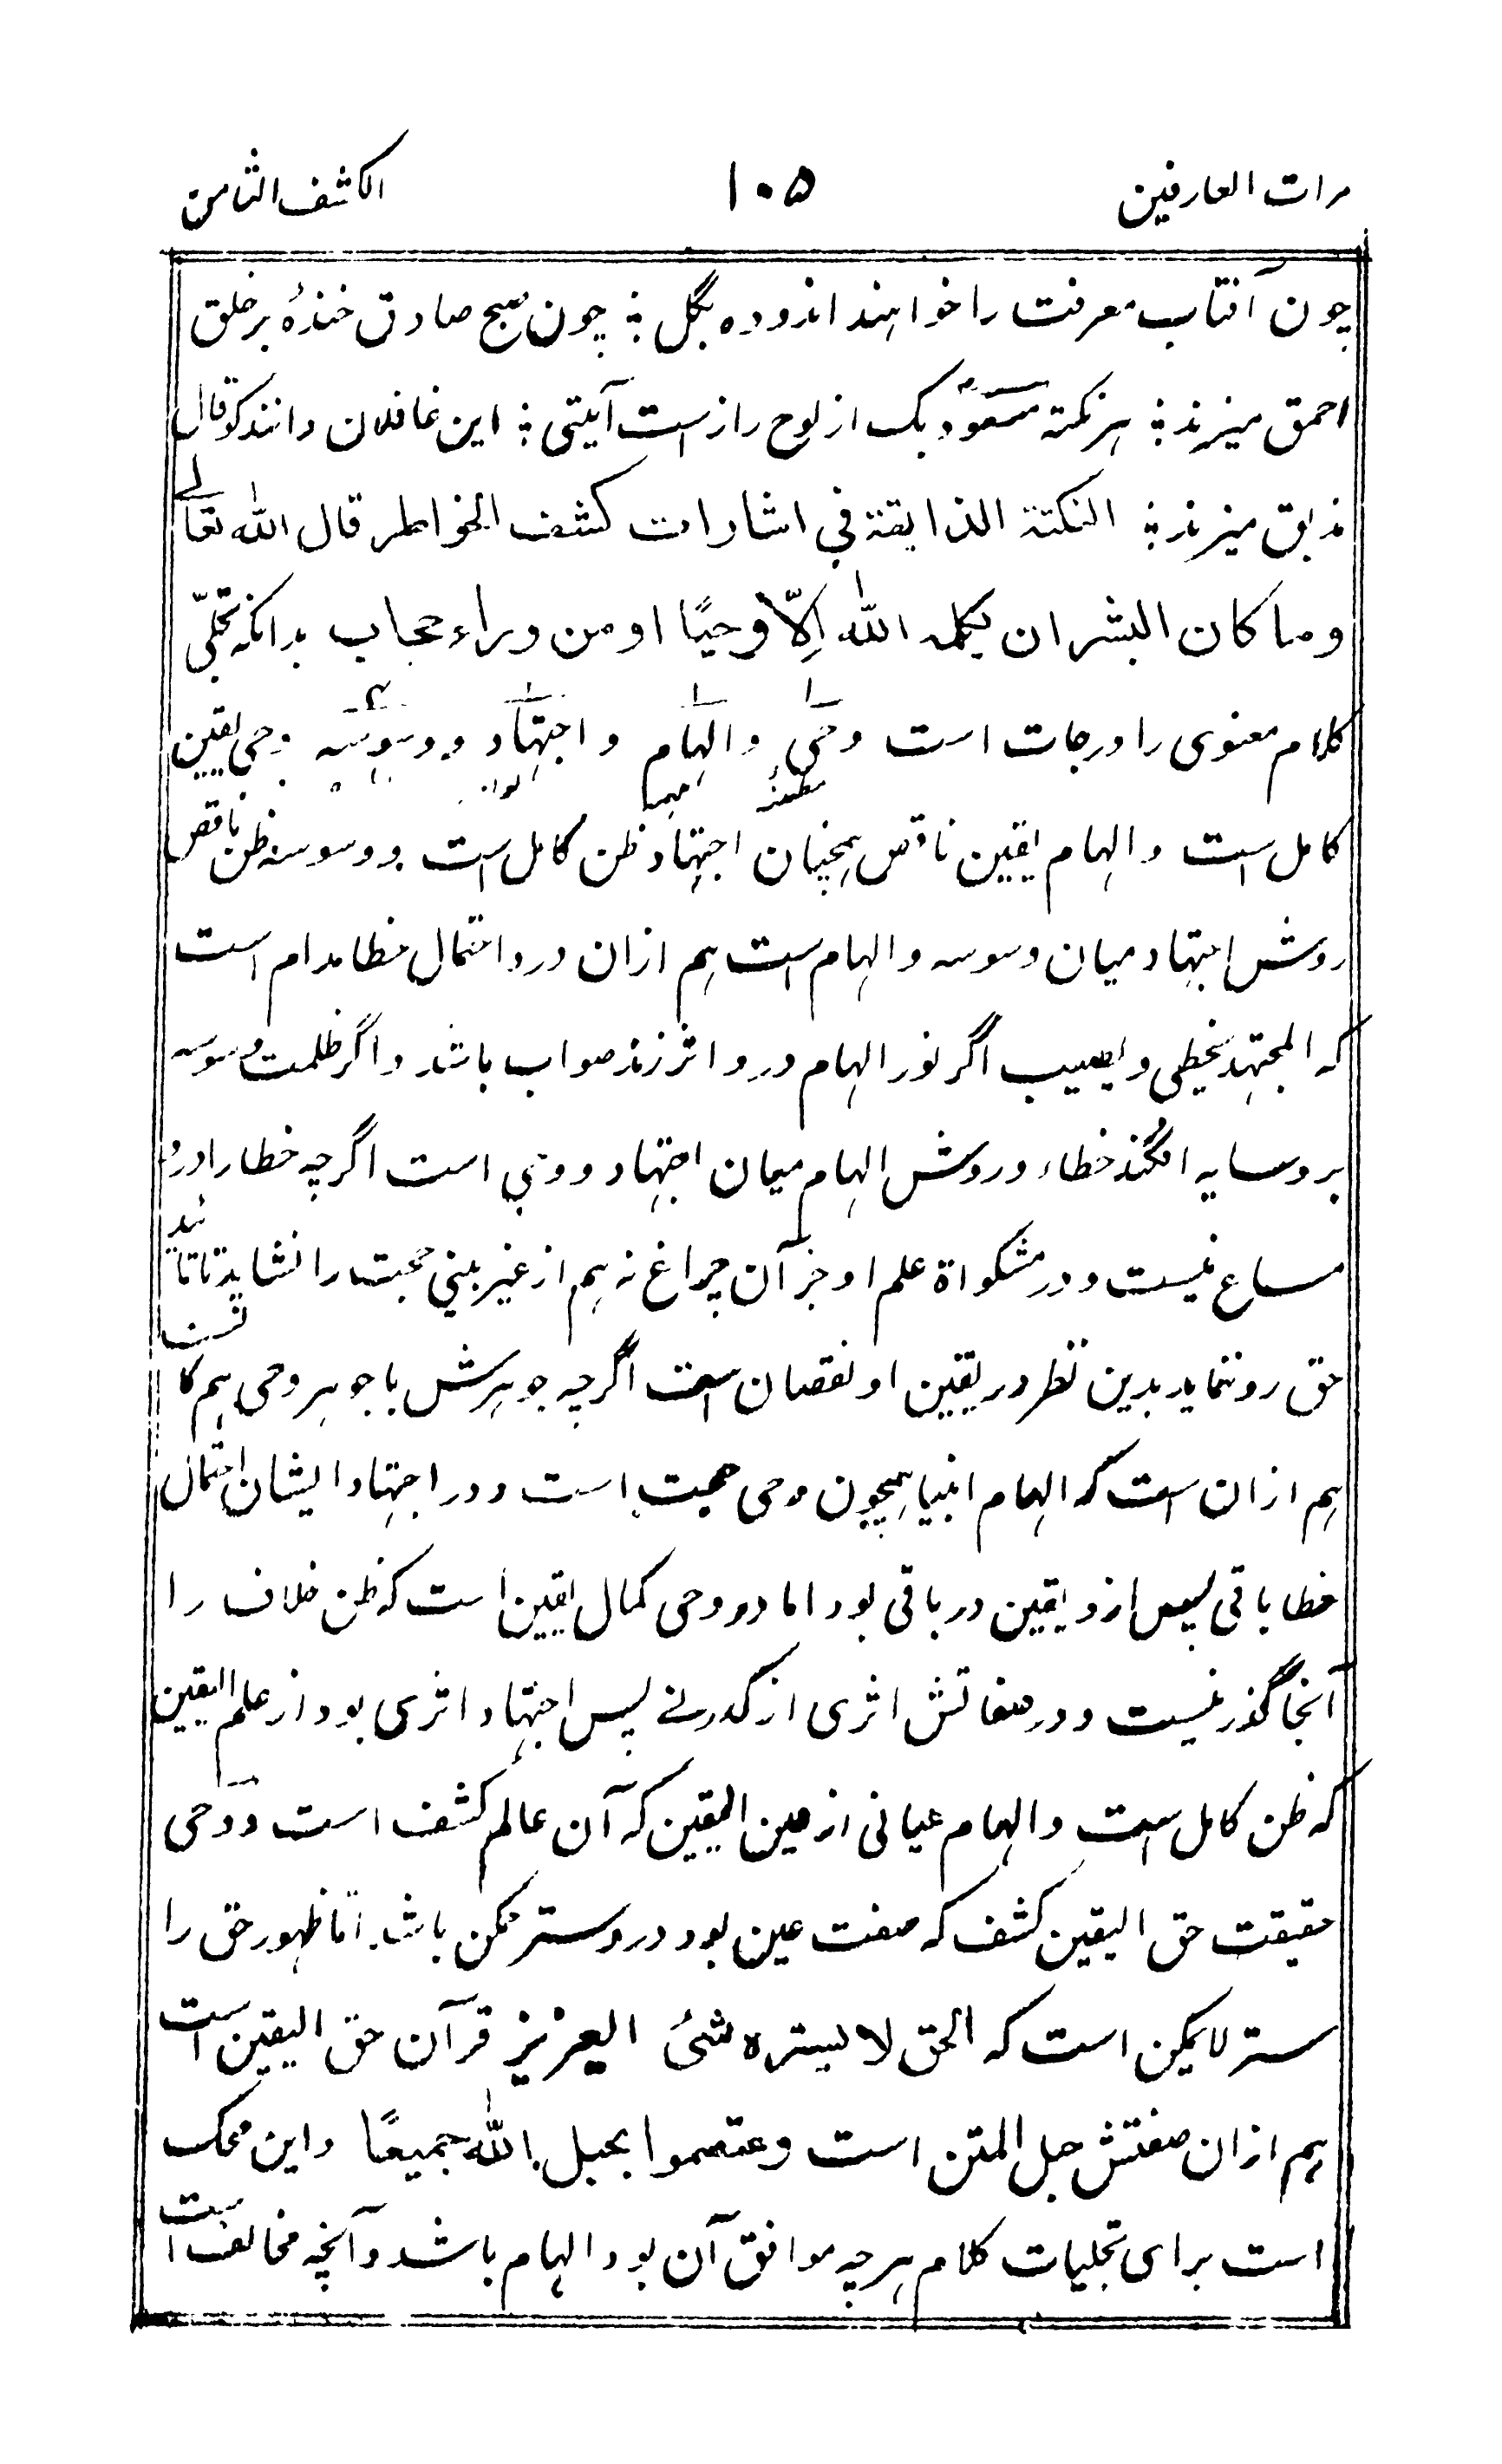 مرات العارفین ۱۰۵ الکشف الثامن
چون آفتاب معرفت را خواهند اندوده بگل ؛ چون صبح صادق خندهٔ بر خلق
احمق میزند ؛ هر نکته مسعود بک از لوح راز است آیتی ؛ این غافلان دانند کو قال
میزند ؛ النکتة الذایقة في اشارات کشف الخواطر قال الله تعالے
وما کان البشر ان یکلمه الله اِلّا وحیًا او من وراء حجاب بدانکه تجلّی
کلام معنوی را درجات است وحی و الهام و اجتهاد و وسوسه وحی یقین
مطمئنه ملهمه لوامه
کامل است و الهام یقین ناقص همچنان اجتهاد ظن کامل است و وسوسه ظن ناقص
روش اجتهاد میان وسوسه و الهام است هم ازان درو احتمال خطا مدام است
که المجتهد یخطی و یصیب اگر نور الهام درو اثر زند صواب باشد و اگر ظلمت وسوسه
برو سایه افگند خطاء و روش الهام میان اجتهاد و وحی است اگرچه خطا را درو
مساع نیست و در مشکواة علم او جز آن چراغ نه هم از غیر بینی حجت را نشاید تا تائید
حق رو ننماید بدین نظر در یقین او نقصان است اگرچه جوهرش با جوهر وحی هم کا
هم ازان است که الهام انبیا همچون وحی حجت است و در اجتهاد ایشان احتمال
خطا باقی پس ازو یقین در باقی بود اما در وحی کمال یقین است که ظن خلاف را
آنجا گذر نیست و در صفاتش اثری از کدر نے پس اجتهاد اثری بود از علم الیقین
که ظن کامل است و الهام عیانی از عین الیقین که آن عالم کشف است و وحی
حقیقت حق الیقین کشف که صفت عین بود درو ستر ممکن باشد امّا ظهور حق را
ستر لایمکن است که الحق لا یستره شیٔ العزیز قرآن حق الیقین است
هم ازان صفتش حبل المتن است وعتصموا بحبل الله جمیعًا و این محک
است برای تجلیات کلام هرچه موافق آن بود الهام باشد و آنچه مخالف است